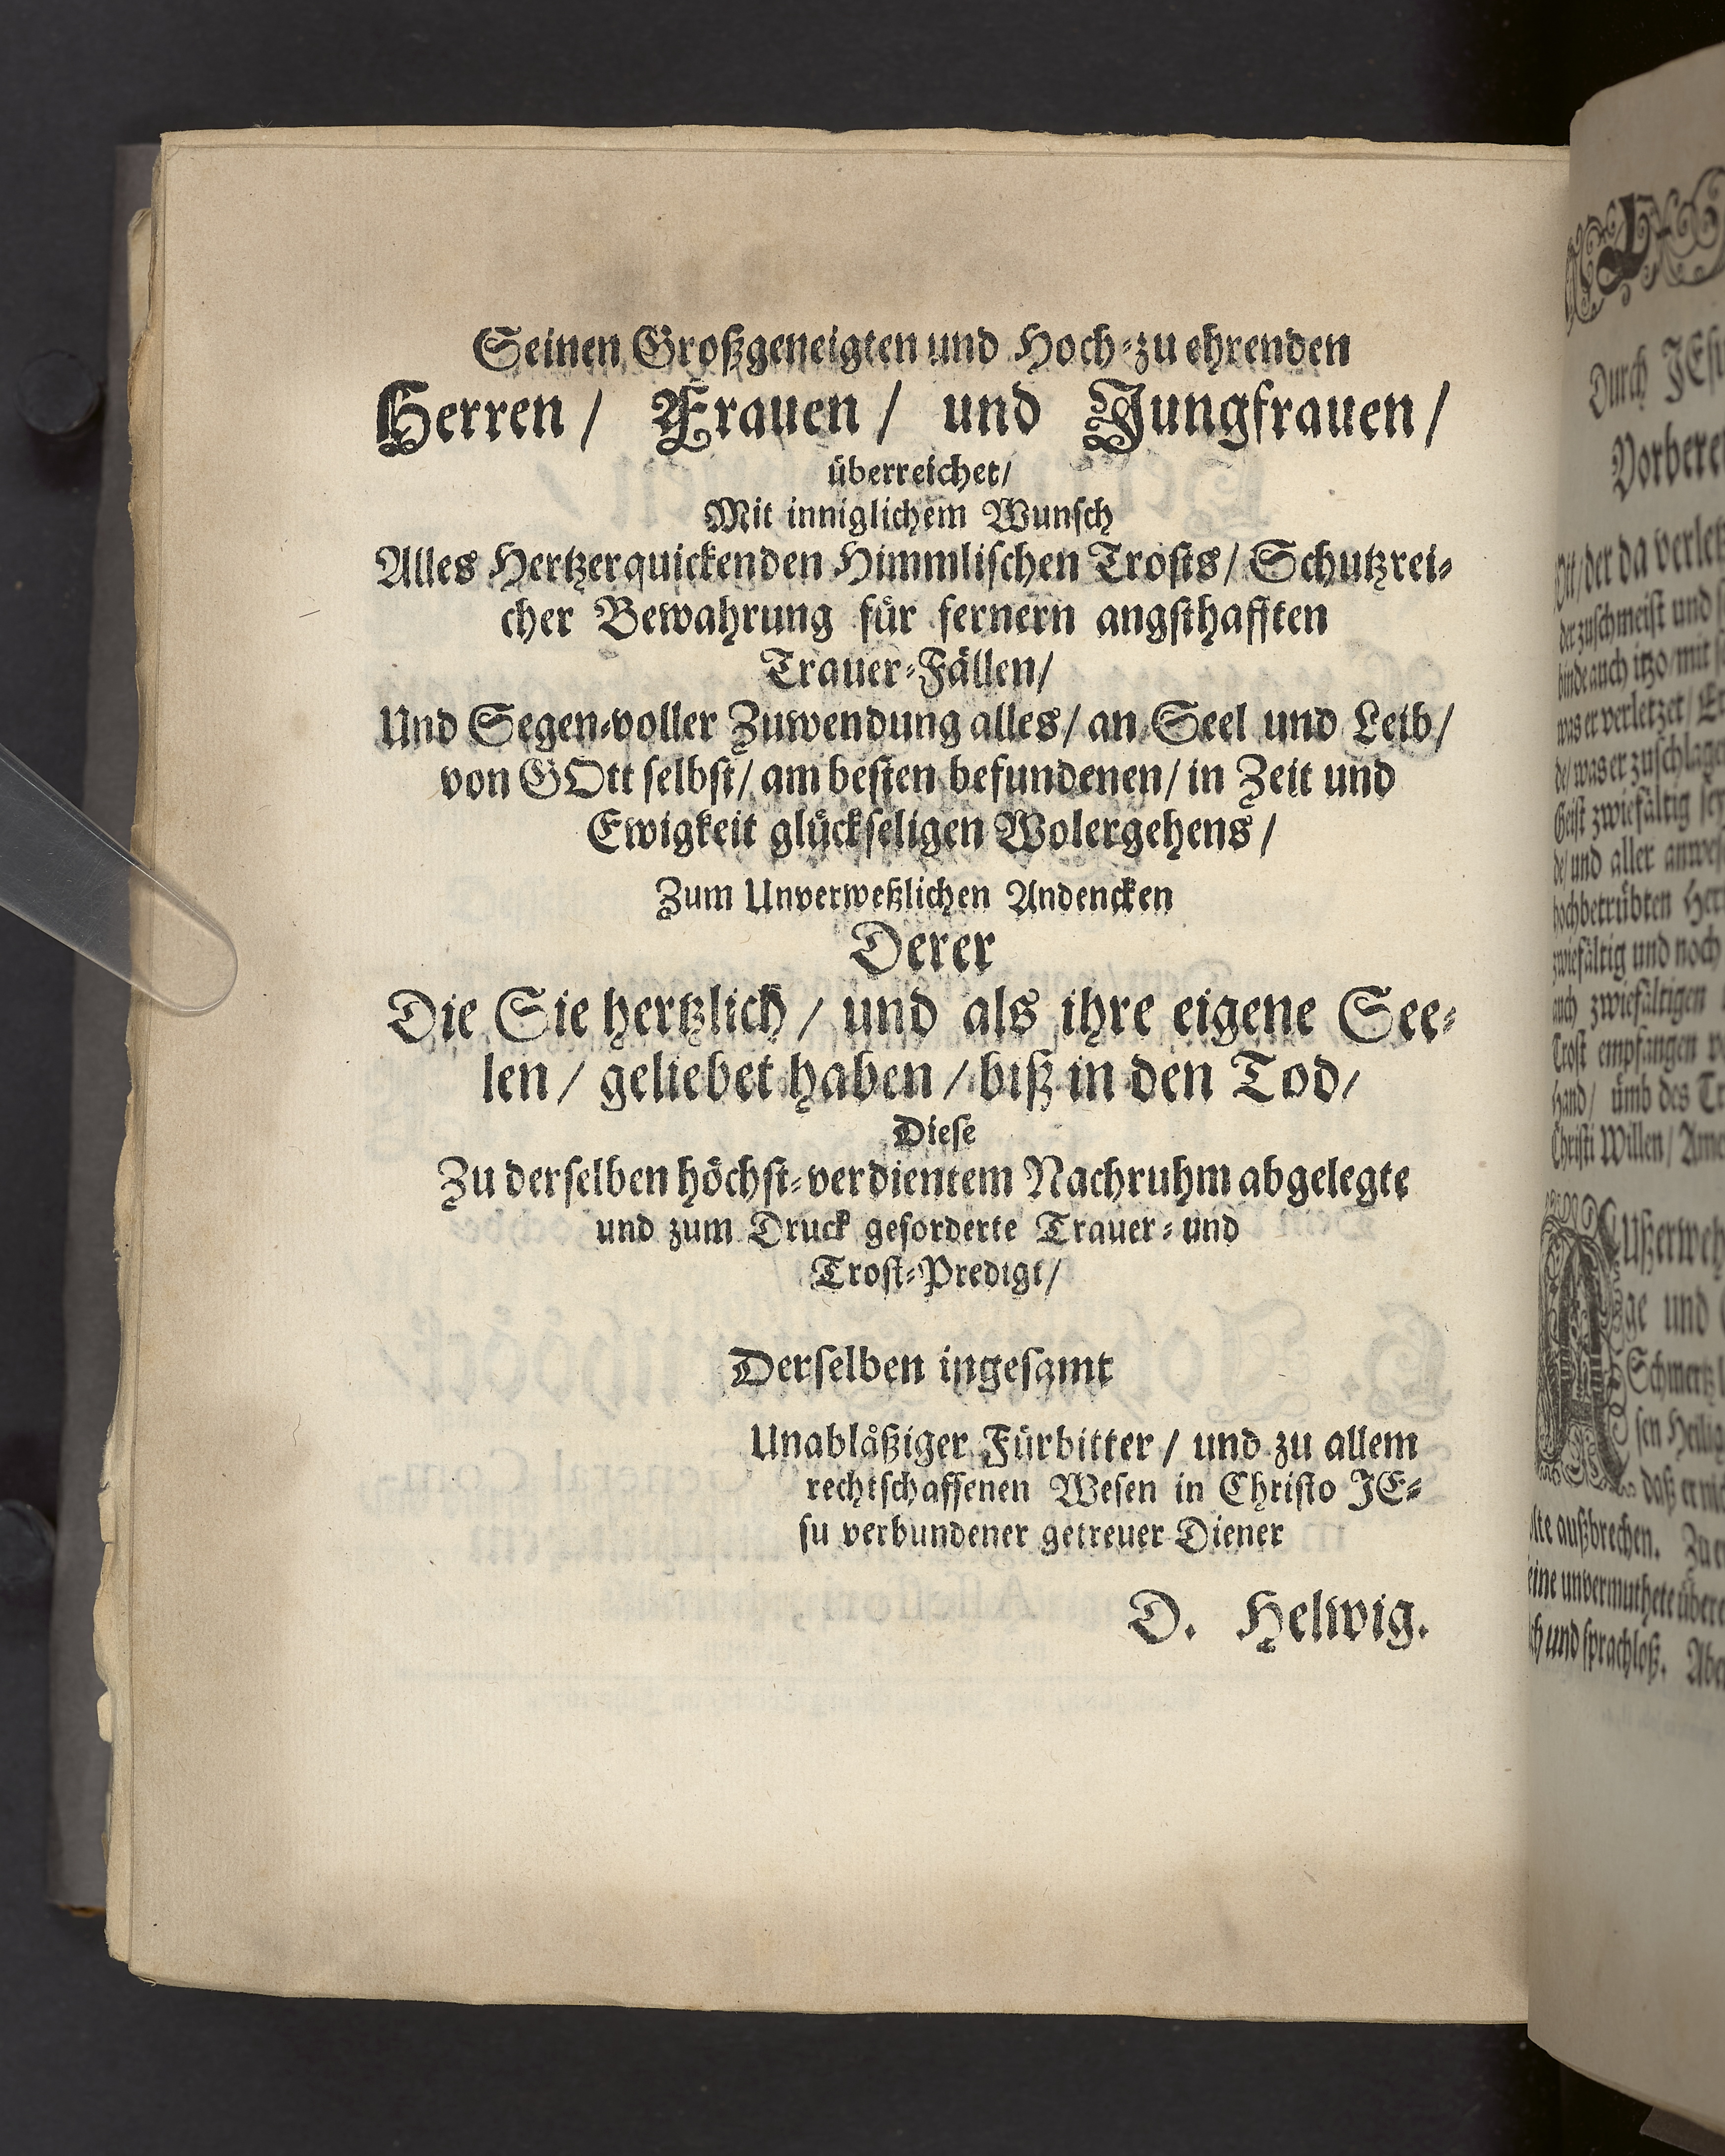 Seinen Großgeneigten und Hoch-zu ehrenden
Herren / Frauen / und Jungfrauen /
überreichet/
Mit inniglichem Wunsch
Alles Hertzerquickenden Himmlischen Trosts/ Schutzrei-
cher Bewahrung für fernern angsthafften
Trauer-Fällen/
Und Segen-voller Zuwendung alles/ an Seel und Leib/
von GOtt selbst/ am besten befundenen/ in Zeit und
Ewigkeit glückseligen Wolergehens /
Zum Unverweßlichen Andencken
Derer
Die Sie hertzlich / und als ihre eigene See-
len / geliebet haben / biß in den Tod/
Diese
Zu derselben höchst-verdientem Nachruhm abgelegte
und zum Druck geforderte Trauer- und
Trost-Predigt/
Derselben ingesamt
Unabläßiger Fürbitter / und zu allem
rechtschaffenen Wesen in Christo JE-
su verbundener getreuer Diener
D. Helwig.
Durch JEsu
der da verletz
der zuschmeist und
binde auch itzo/ mit
was er verletzet/
de/ was er zuschlage
Geist zwiefältig sey
de/ und aller
hochbetrübten Herr
zwiefältig und noch
auch zwiefältigen
Trost empfangen
Hand/ ümb des
Christi Willen/ Ame
Ußerweh
ge und
Schmertz
sen Heilig
daß er
lte außbrechen. Zu
eine unvermuthete übere
ch und sprachloß. Aber